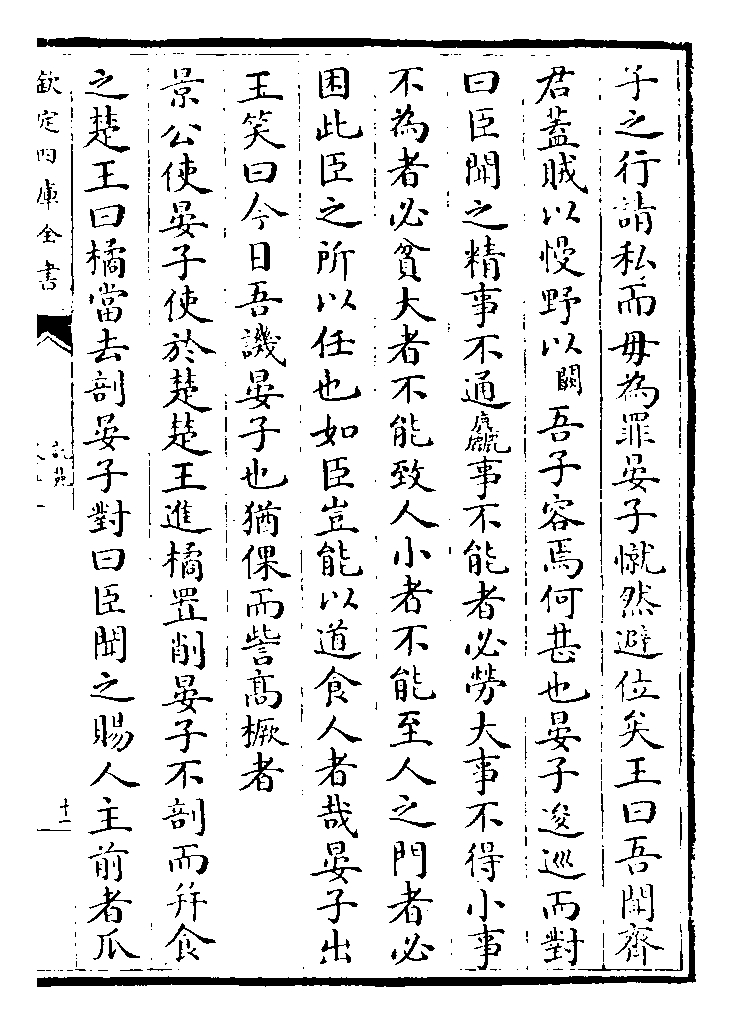 子之行請私而毋為罪晏子憱然避位矣王曰吾聞齊
君蓋賊以慢野以闘吾子容焉何甚也晏子逡巡而對
曰臣聞之精事不通麤事不能者必勞大事不得小事
不為者必貧大者不能致人小者不能至人之門者必
困此臣之所以任也如臣豈能以道食人者哉晏子出
王笑曰今日吾譏晏子也猶倮而訾髙橛者
景公使晏子使於楚楚王進橘置削晏子不剖而并食
之楚王曰橘當去剖晏子對曰臣聞之賜人主前者瓜
欽定四庫全書
十二